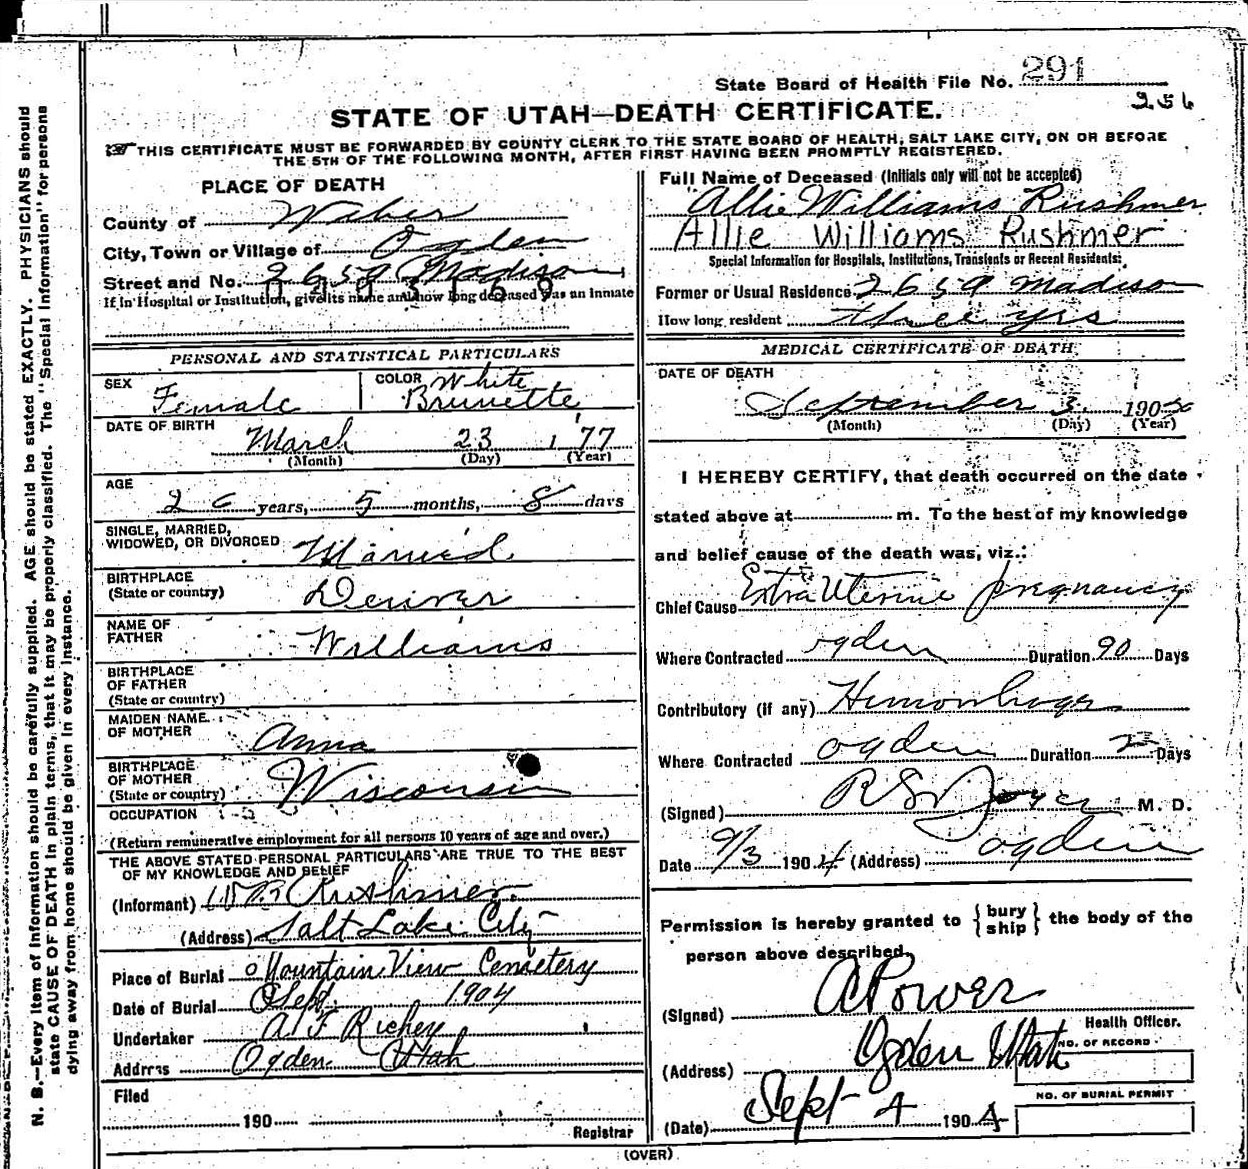 State Board of Health File No. 291
256
STATE OF UTAH—DEATH CERTIFICATE.
THIS CERTIFICATE MUST BE FORWARDED BY COUNTY CLERK TO THE STATE BOARD OF HEALTH, SALT LAKE CITY, ON OR BEFORE
THE 5TH OF THE FOLLOWING MONTH, AFTER FIRST HAVING BEEN PROMPTLY REGISTERED.
N. B.—Every item of information should be carefully supplied. AGE should be stated EXACTLY. PHYSICIANS should
state CAUSE OF DEATH in plain terms, that it may be properly classified. The "Special Information" for persons
dying away from home should be given in every instance.
PLACE OF DEATH
County of Weber
City, Town or Village of Ogden
Street and No. 2659 Madison
If in Hospital or Institution, give its name and how long deceased was an inmate
PERSONAL AND STATISTICAL PARTICULARS
SEX Female
COLOR White
Brunette
DATE OF BIRTH March 23 1 77
(Month) (Day) (Year)
AGE
26 years, 5 months, 8 days
SINGLE, MARRIED,
WIDOWED, OR DIVORCED Married
BIRTHPLACE
(State or country) Denver
NAME OF
FATHER Williams
BIRTHPLACE
OF FATHER
(State or country)
MAIDEN NAME
OF MOTHER Anna
BIRTHPLACE
OF MOTHER
(State or country) Wisconsin
OCCUPATION
(Return remunerative employment for all persons 10 years of age and over.)
THE ABOVE STATED PERSONAL PARTICULARS ARE TRUE TO THE BEST
OF MY KNOWLEDGE AND BELIEF
(Informant) Rushmer
(Address) Salt Lake City
Place of Burial Mountain View Cemetery
Date of Burial Sept. 1904
Undertaker A F Richey
Address Ogden Utah
Filed
190
Registrar
Full Name of Deceased (Initials only will not be accepted)
Allie Williams Rushmer
Allie Williams Rushmer
Special Information for Hospitals, Institutions, Transients or Recent Residents:
Former or Usual Residence 2659 Madison
How long resident three yrs
MEDICAL CERTIFICATE OF DEATH
DATE OF DEATH
September 3. 190
(Month) (Day) (Year)
I HEREBY CERTIFY, that death occurred on the date
stated above at m. To the best of my knowledge
and belief cause of the death was, viz.:
Chief Cause Extra Uterine pregnancy
Where Contracted ogden Duration 90 Days
Contributory (if any) Hemorrhage
Where Contracted ogden Duration 2 Days
(Signed) M. D.
Date 9/3 1904 (Address) ogden
Permission is hereby granted to { bury
ship } the body of the
person above described.
(Signed) A Power
Health Officer.
(Address) Ogden Utah
NO. OF RECORD
NO. OF BURIAL PERMIT
(Date) Sept 4 1904
(OVER)